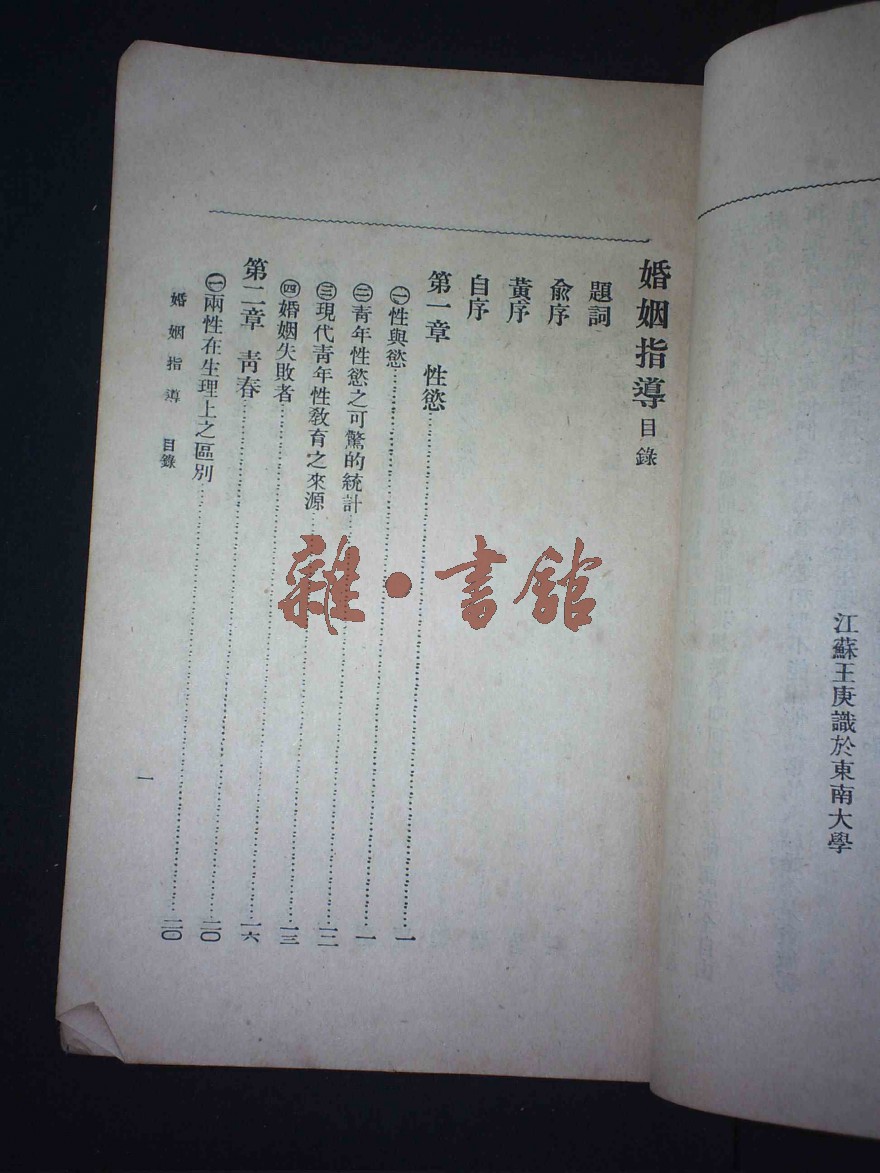 江蘇王庚識於東南大學
婚姻指導目錄
題詞
俞序
黃序
自序
第一章 性慾……一
㊀性與慾……一
㊁青年性慾之可驚的統計……一二
㊂現代青年性教育之來源……一三
㊃婚姻失敗者……一六
第二章 青春……二〇
㊀兩性在生理上之區別……二〇
婚姻指導 目錄
一
雜·書館